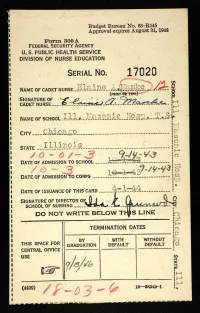 Budget Bureau No. 68-R045
Approval expires August 31, 1943
Form 300 A
FEDERAL SECURITY AGENCY
U. S. PUBLIC HEALTH SERVICE
DIVISION OF NURSE EDUCATION
SERIAL NO. 17020
NAME OF CADET NURSE Elaine A.
SIGNATURE OF CADET NURSE
NAME OF SCHOOL Ill. Masonic Hosp.
CITY Chicago
STATE Illinois
10-01-3 9-14-43
DATE OF ADMISSION TO SCHOOL
10-3
DATE OF ADMISSION TO CORPS
DATE OF ISSUANCE OF THIS CARD 4-1-44
SIGNATURE OF DIRECTOR OF SCHOOL OF NURSING
DO NOT WRITE BELOW THIS LINE
THIS SPACE FOR CENTRAL OFFICE USE
TERMINATION DATES
BY GRADUATION
WITH DEFAULT
WITHOUT DEFAULT
18-03-6
SCHOOL Ill. Masonic Hosp.
CITY Chicago
STATE Ill.